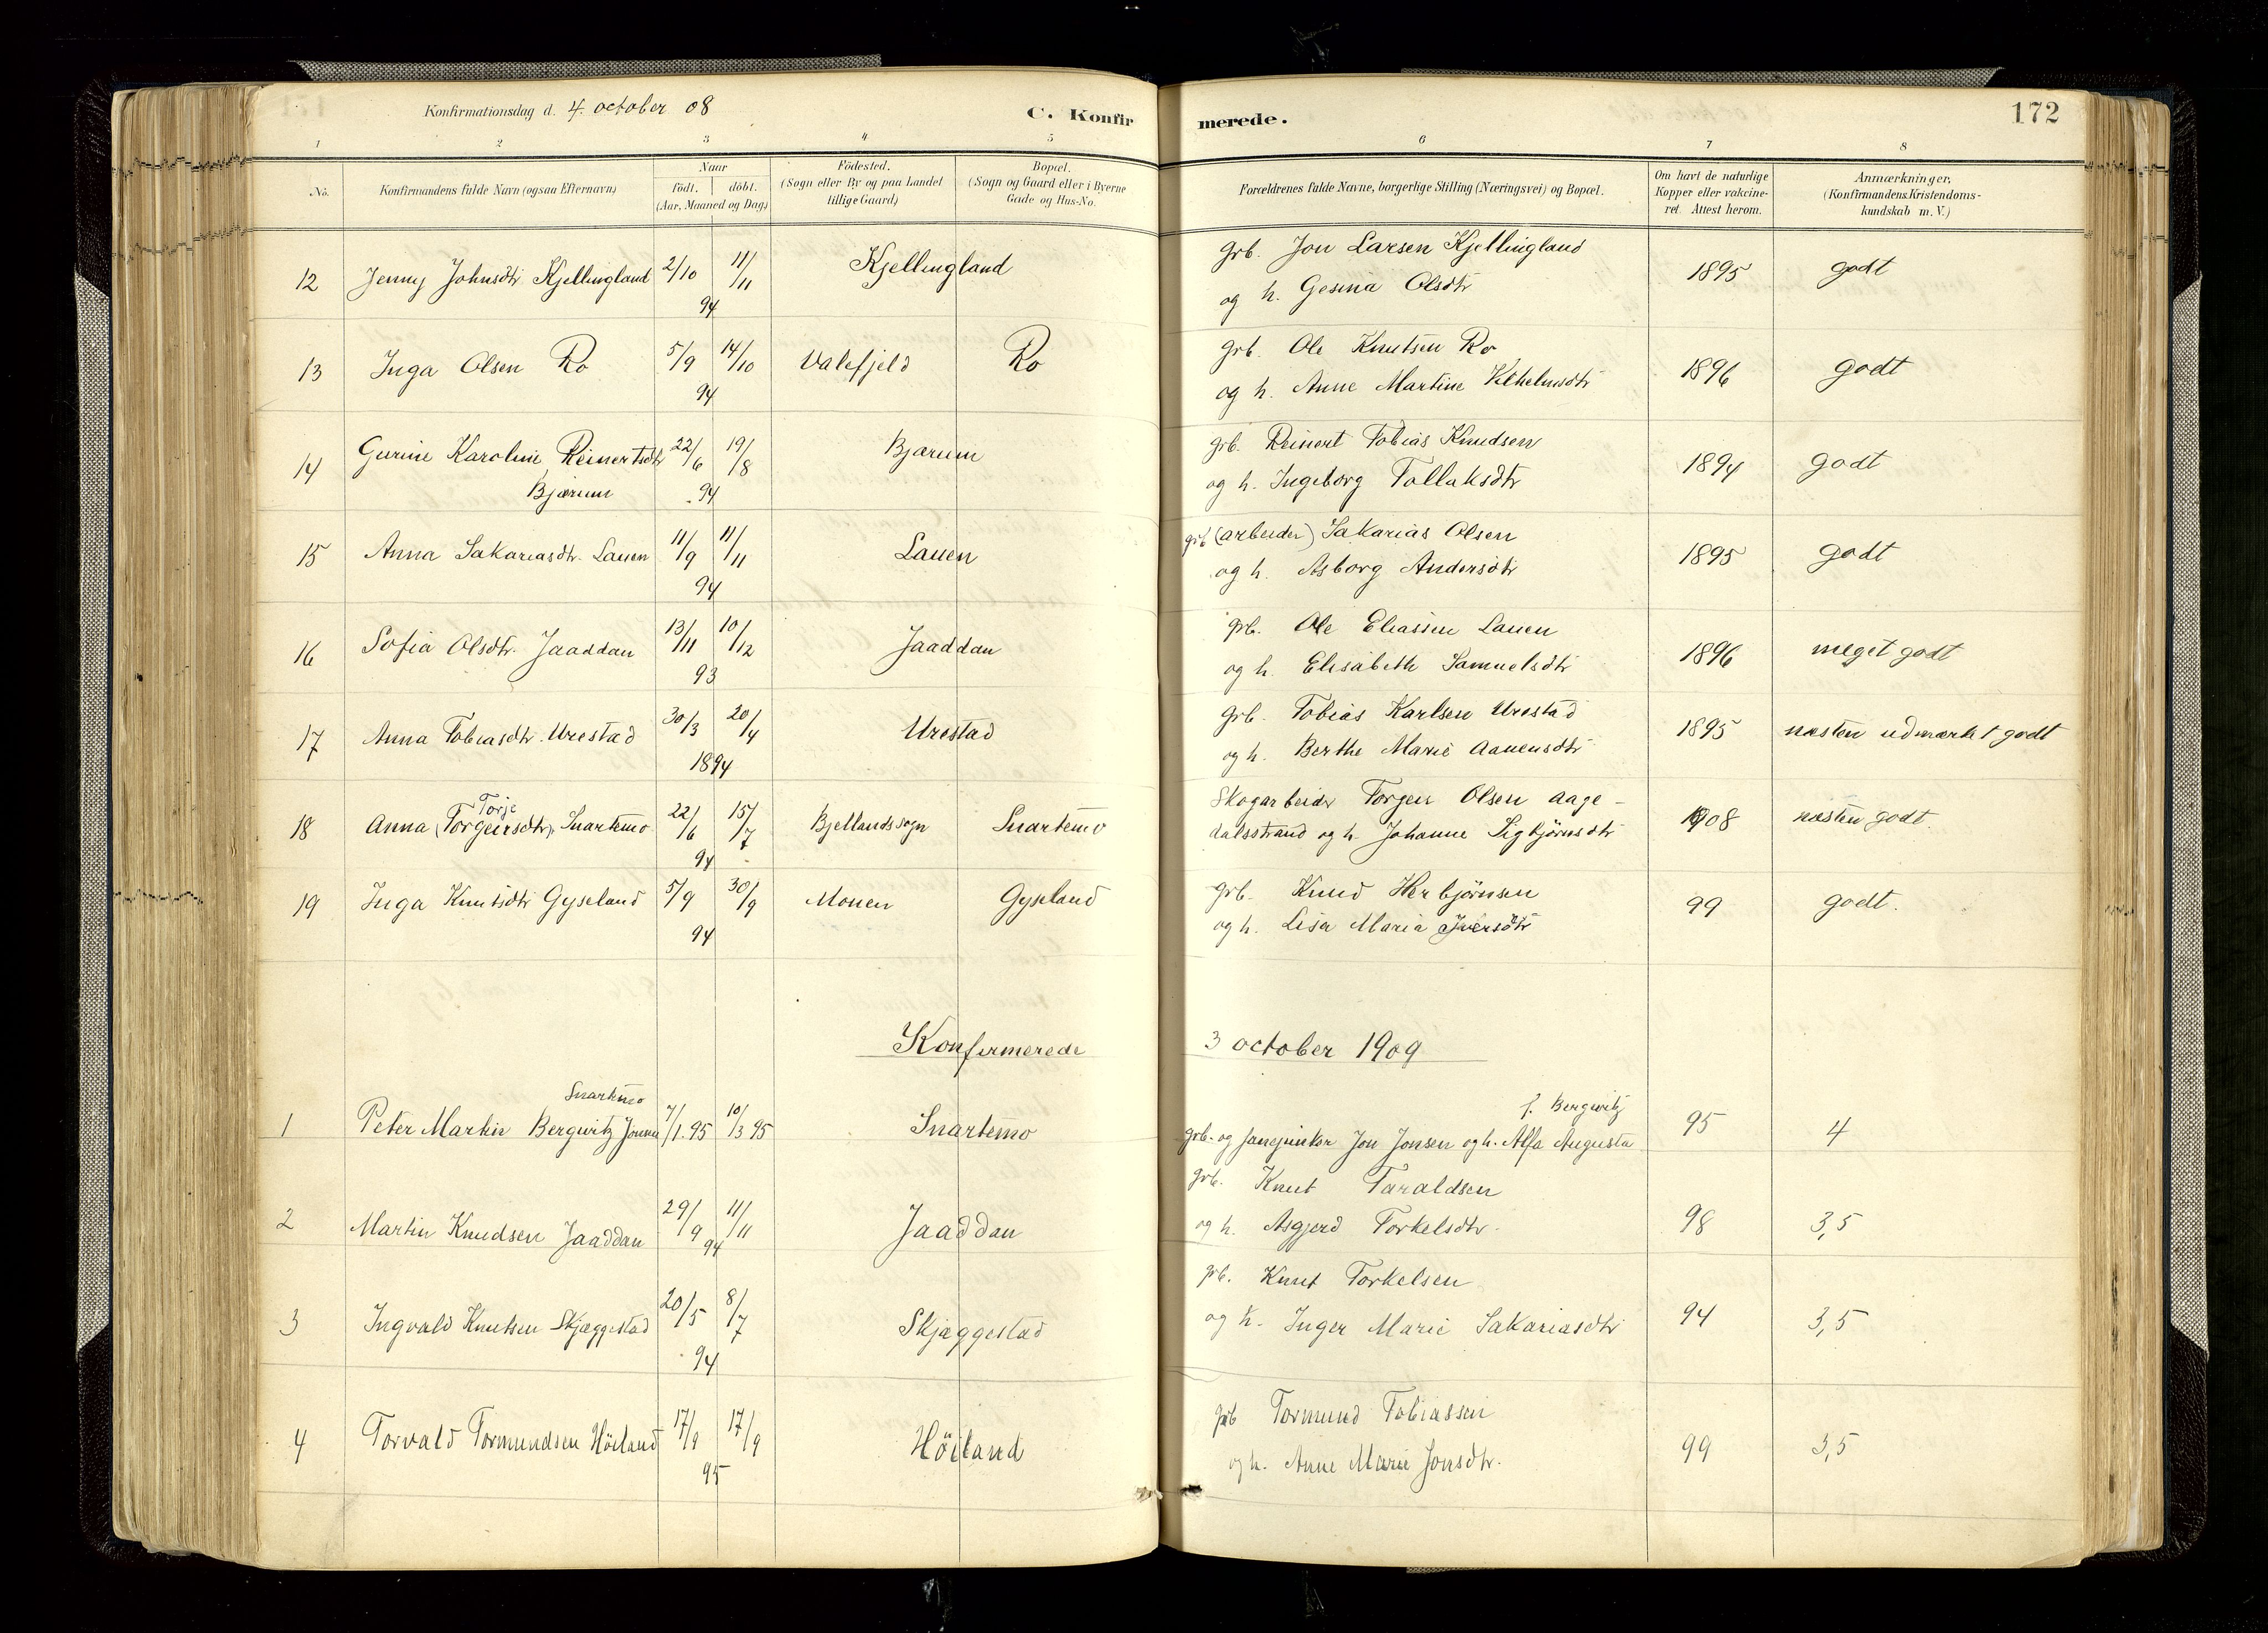 Konfirmationsdag d. 4. october 08
C. Konfirmerede.
172
1 2 3 4 5 6 7 8
No.
Konfirmandens fulde Navn (ogsaa Efternavn)
Naar
födt. döbt.
(Aar, Maaned og Dag)
Födested.
(Sogn eller By og paa Landet
tillige Gaard)
Bopæl.
(Sogn og Gaard eller i Byerne
Gade og Hus-No.
Forældrenes fulde Navne, borgerlige Stilling (Næringsvei) og Bopæl.
Om havt de naturlige
Kopper eller vakcine-
ret. Attest herom.
Anmærkninger,
(Konfirmandens Kristendoms-
kundskab m. V.)
12 Jenny Johnsdtr Kjellingland 2/10 11/11 94 Kjellingland
grb. Jon Larsen Kjellingland
og h. Gesina Olsdtr
1895 godt
13 Inga Olsen Ro 5/9 14/10 94 Valefjeld Ro
grb. Ole Knutsen Ro
og h. Anne Martine Vilhelmsdtr
1896 godt
14 Gurine Karoline Reinertsdtr
Bjærum 22/6 19/8 94 Bjærum
grb. Reinert Tobias Knudsen
og h. Ingeborg Tollaksdtr
1894 godt
15 Anna Sakariasdtr. Lauen 11/9 11/11 94 Lauen
grb (arbeider) Sakarias Olsen
og h. Asborg Andersdtr
1895 godt
16 Sofia Olsdtr. Jaaddan 13/11 10/12 93 Jaaddan
grb. Ole Eliassen Lauen
og h. Elisabeth Samuelsdtr
1896 meget godt
17 Anna Tobiasdtr. Urestad 30/3 20/4 1894 Urestad
grb. Tobias Karlsen Urestad
og h. Berthe Marie Aanensdtr
1895 næsten udmærket godt
Torje
18 Anna (Torgeirsdtr) Snartemo 22/6 15/7 94 Bjellands sogn Snartemo
Skogarbeider Torgeir Olsen Aage-
dalsstrand og h. Johanne Sigbjörnsdtr
1908 næsten godt.
19 Inga Knutsdtr Gyseland 5/9 30/9 94 Monen Gyseland
grb. Knud Herbjörnsen
og h. Lisa Maria Iversdtr
99 godt.
Konfirmerede 3 october 1909
Snartemo
1 Peter Martin Bergwitz 7/1. 95 10/3 95 Snartemo
f. Bergwitz
grb. og Jon Jonsen og h. Alfa Augusta
95 4
2 Martin Knudsen Jaaddan 29/9 11/11 94 Jaaddan
grb. Knut Taraldsen
og h. Asgjerd Torkelsdtr.
98 3,5
3 Ingvald Knutsen Skjæggestad 20/5 8/7 94 Skjæggestad
grb. Knut Torkelsen
og h. Inger Marie Sakariasdtr
94 3,5
4 Torvald Tormundsen Höiland 17/9 17/9 95 Höiland
grb Tormund Tobiassen
og h. Anne Marie Jonsdtr.
99 3,5